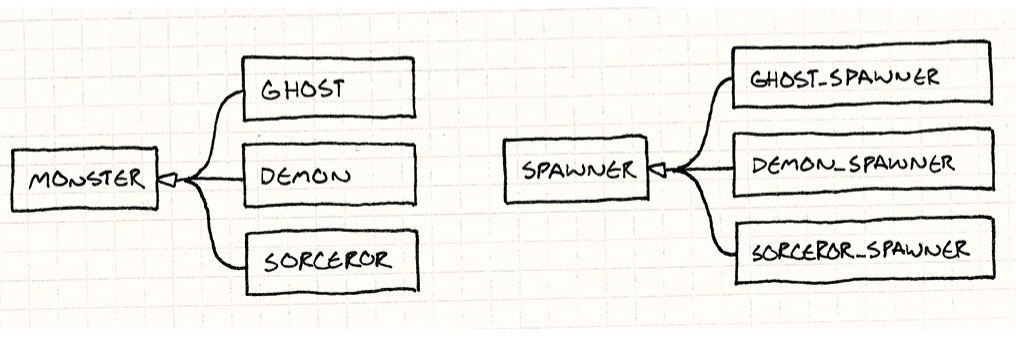 MONSTER
GHOST
DEMON
SORCEROR
SPAWNER
GHOST_SPAWNER
DEMON_SPAWNER
SORCEROR_SPAWNER